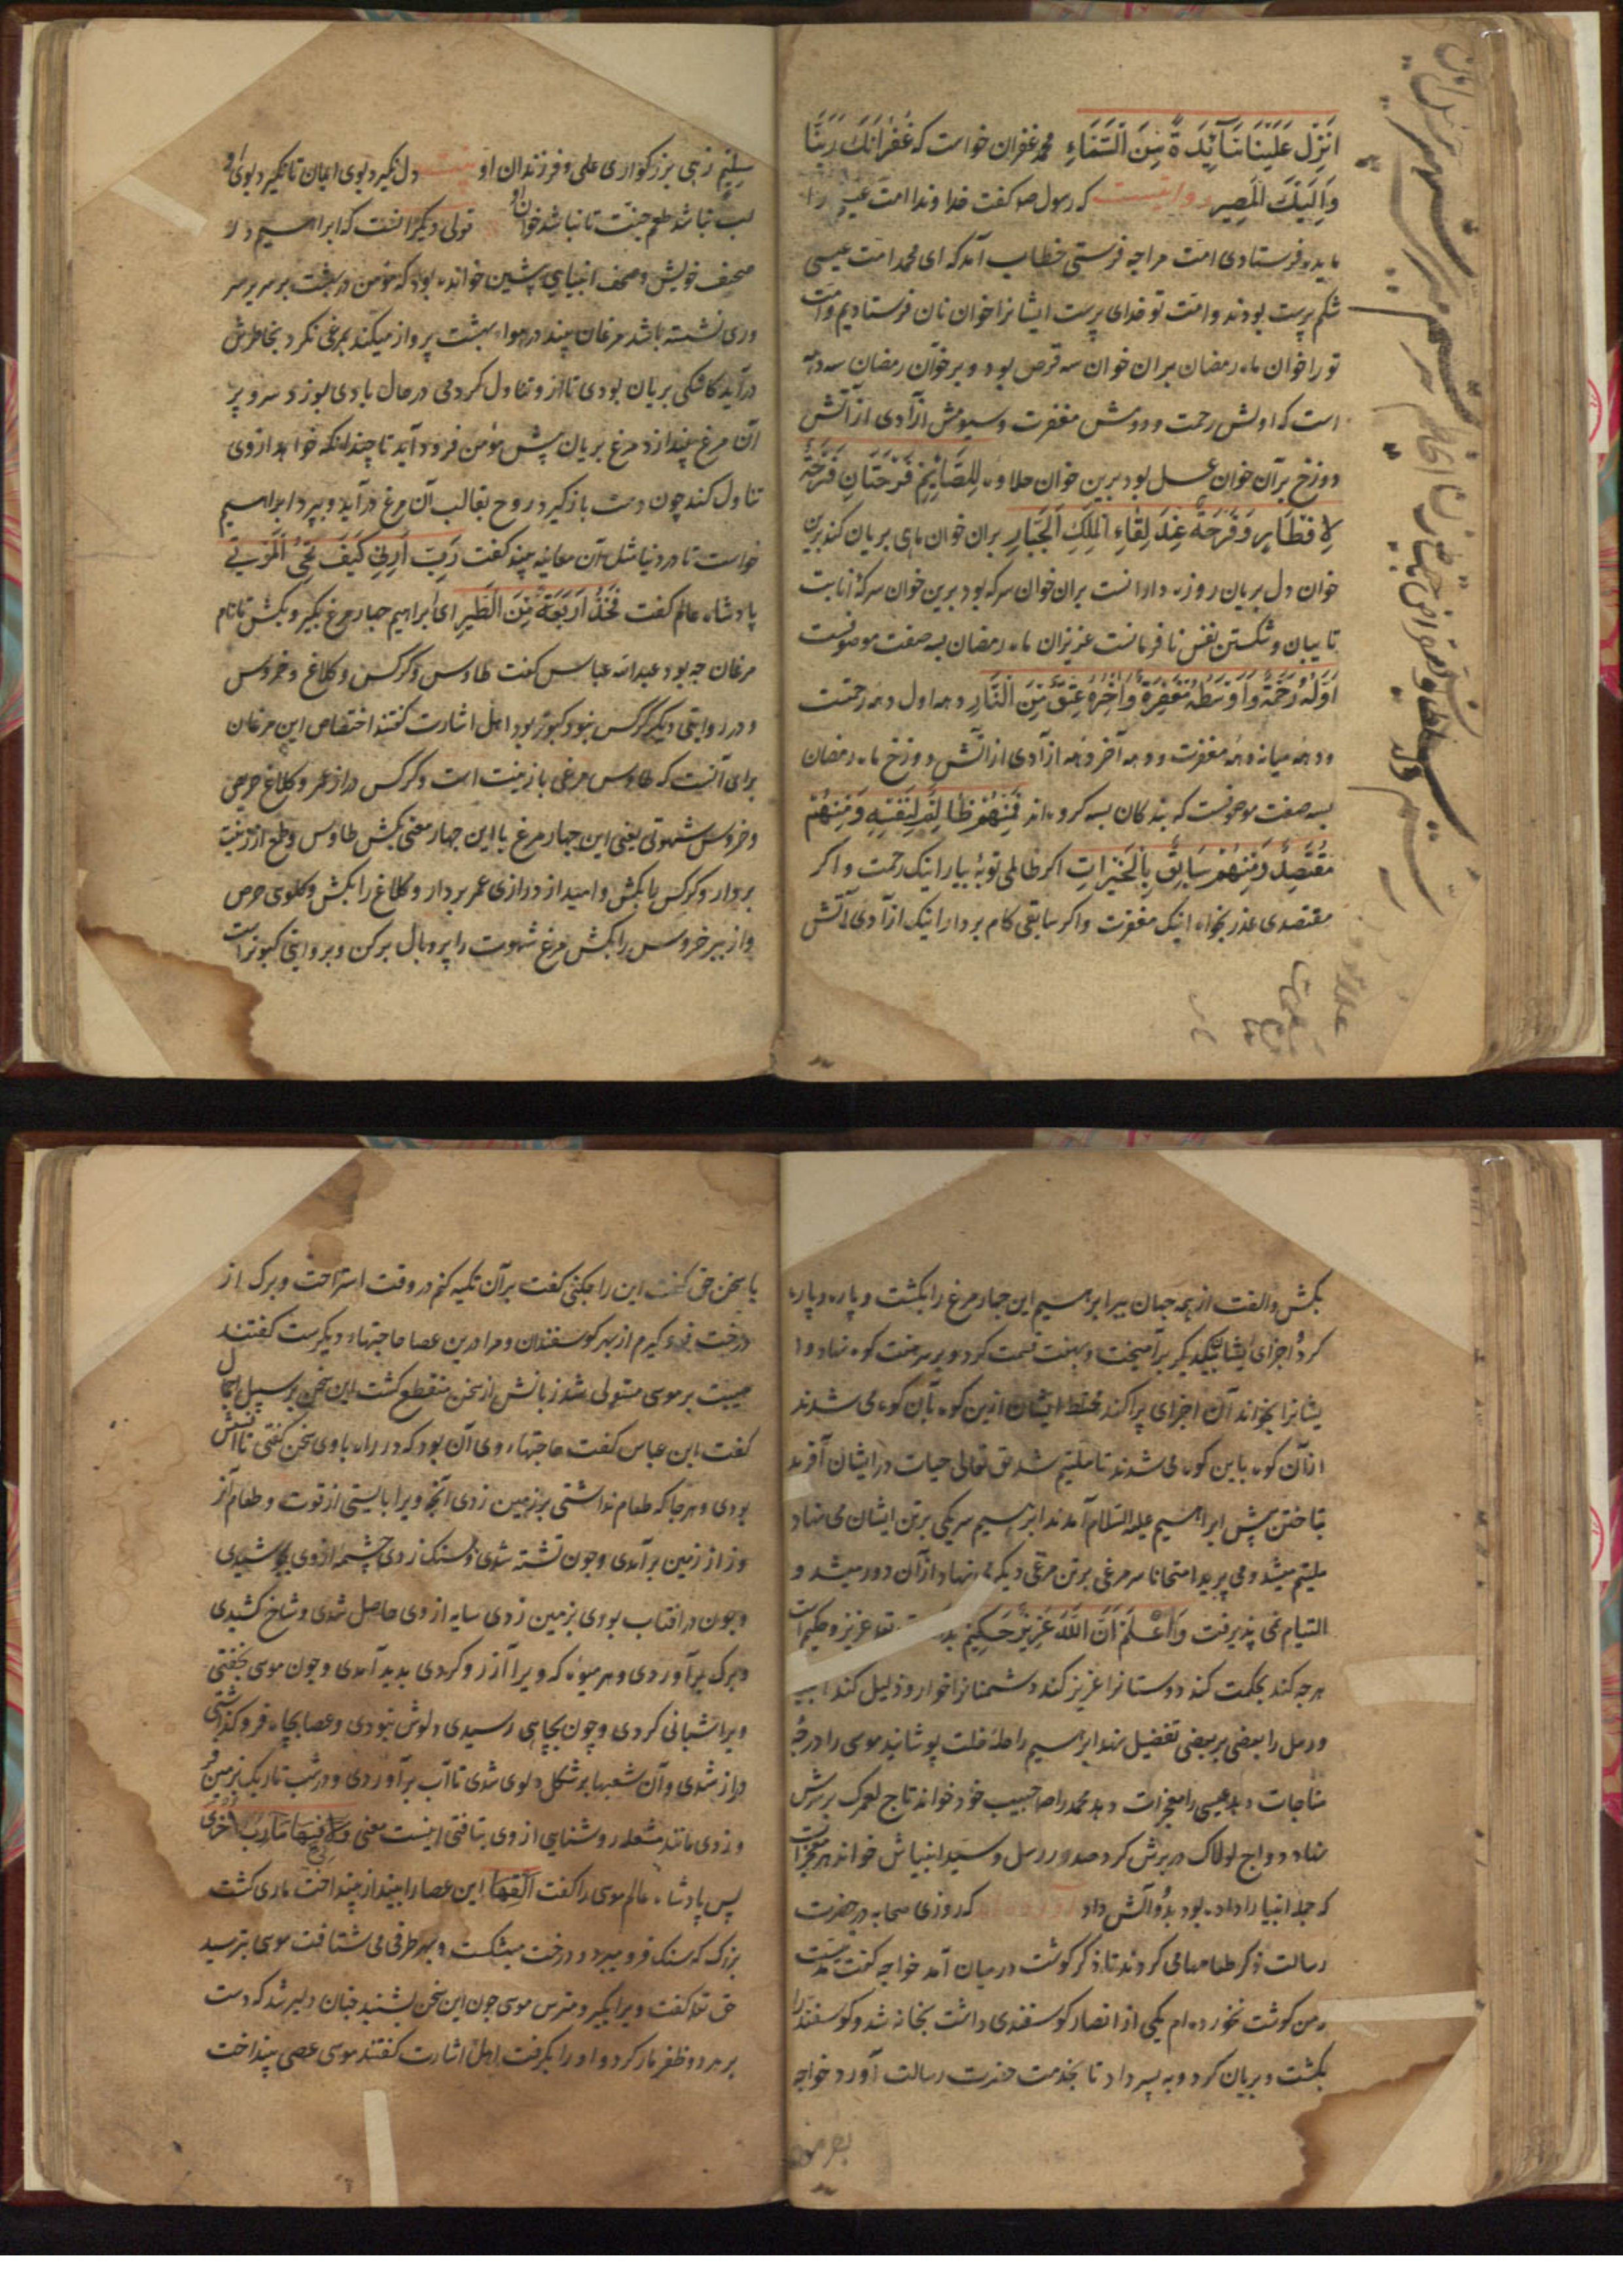 انزل علینا مآئدة من السماء محمد غفران خواست که غفرانک ربنا
والیک المصیر روایتست که رسول صه گفت خداوندا امت عیسی را
مایده فرستادی امت مرا چه فرستی خطاب آمد که ای محمد امت عیسی
شکم پرست بودند و امت تو خدای پرست ایشانرا خوان نان فرستادیم و امت
تو را خوان ماه رمضان بران خوان سه قرص بود و بر خوان رمضان سه دهه
است که اولش رحمت و دومش مغفرت و سیومش آزادی از آتش
دوزخ بر آن خوان عسل بود برین خوان حلاوه للصایم فرحتان فرحة
لافطاره و فرحة عند لقاء الملک الجبار بران خوان ماهی بریان کند برین
خوان دل بریان روزه دارانست بران خوان سرکه بود برین خوان سرکۀ انابت
تایبان و شکستن نفس نافرمانست عزیزان ماه رمضان بسه صفت موصوفست
اوله رحمة و اوسطه مغفرة و اخره عتق من النار دهه اول دهه رحمتست
و دهه میانه دهه مغفرت و دهه آخر دهه آزادی از آتش دوزخ ماه رمضان
بسه صفت موصوفست که بندگان بسه گروه اند فمنهم ظالم لنفسه و منهم
مقتصد و منهم سابق بالخیرات اگر ظالمی توبه بیار اینک رحمت و اگر
مقتصدی عذر بخواه اینک مغفرت و اگر سابقی گام بردار اینک آزادی آتش
زهی بزرگواری علی و فرزندان او بیت دل نگیرد بوی ایمان تا نگیرد بوی او
لب نباشد طعم جنت تا نباشد خوان او قولی دیگر آنست که ابراهیم در
صحف خویش و صحف انبیای پیشین خوانده بود که مؤمن در بهشت بر سریر سر
وری نشسته باشد مرغان بیند در هواء بهشت پرواز میکنند بمرغی نگرد بخاطرش
درآید کاشکی بریان بودی تا از و تناول کردمی در حال بادی بوزد سر و پر
آن مرغ بیندازد مرغ بریان پیش مؤمن فرود آید تا چندانکه خواهد از وی
تناول کند چون دست باز گیرد روح بقالب آن مرغ درآید و بپرد ابراهیم
خواست تا در دنیا مثل آن معاینه بیند گفت رب ارنی کیف تحی الموتی
پادشاه عالم گفت فخذ اربعة من الطیر ای ابراهیم چهار مرغ بگیر و بکش تا نام
مرغان چه بود عبدالله عباس گفت طاوس و کرکس و کلاغ و خروس
و در روایتی دیگر کرکس نبود کبوتر بود اهل اشارت گفتند اختصاص این مرغان
برای آنست که طاوس مرغی بازینت است و کرکس دراز عمر و کلاغ حریص
و خروس شهوتی یعنی این چهار مرغ با این چهار معنی بکش طاوس و طمع از زینت
بردار و کرکس بکش و امید از درازی عمر بردار و کلاغ را بکش و کلوی حرص
واز ببر خروس را بکش مرغ شهوت را پر و بال برکن و بروایتی کبوتر است
بکش و الفت از همه جهان ببر ابراهیم این چهار مرغ را بکشت و پاره پاره
کرد و اجزای ایشان بیکدیگر برآمیخت و بهفت قسمت کرد و بر سر هفت کوه نهاد و ا
یشانرا بخواند آن اجزای پراکنده مختلط ایشان ازین کوه بآن کوه می شدند
از آن کوه باین کوه می شدند تا ملتیم شد حق تعالی حیات در ایشان آفرید
بتاختن پیش ابراهیم علیه السلام آمدند ابراهیم سر یکی بر تن ایشان می نهاد
ملتیم میشد و می پرید امتحانا سر مرغی بر تن مرغی دیگر می نهاد از آن دور میشد و
التیام نمی پذیرفت واعلم ان الله عزیز حکیم عزیز و حکیم است
هرچه کند بحکمت کند دوستانرا عزیز کند دشمنانرا خوار و ذلیل کند
و رسل را بعضی بر بعضی تفضیل نهد ابراهیم را حلۀ خلت پوشانید موسی را درجۀ
مناجات دهد عیسی را معجزات دهد محمد را صه حبیب خود خواند تاج لعمرک بر سرش
نهاد دواج لولاک در برش کرد صدر رسل و سید انبیاش خواند هر معجزات
که جمله انبیا را داده بود بدو آتش داد که روزی صحابه در حضرت
رسالت ذکر طعامها می کردند تا ذکر گوشت در میان آمد خواجه گفت مدتیست
که من گوشت نخورده ام یکی از انصار گوسفندی داشت بخانه شد و گوسفند را
بکشت و بریان کرد و به پسر داد تا بخدمت حضرت رسالت آورد خواجه
با سخن حق گفت این را چکنی گفت بر آن تکیه کنم در وقت استراحت و برگ از
درخت فرو گیرم از بهر گوسفندان و مرا درین عصا حاجتهاء دیگرست گفتند
هیبت بر موسی مستولی شد زبانش از سخن منقطع گشت این سخن بر سبیل اجمال
گفت ابن عباس گفت حاجتهاء وی آن بود که در راه با وی سخن گفتی تا انسش
بودی و هرجا که طعام نداشتی بر زمین زدی آنچه ویرا بایستی از قوت و طعام آنر
وز از زمین برآمدی و چون تشنه شدی بر سنگ زدی چشمه از وی بجوشیدی
و چون در افتاب بودی بزمین زدی سایه از وی حاصل شدی و شاخ کشیدی
و برگ برآوردی و هر میوه که ویرا آرزو کردی پدید آمدی و چون موسی بخفتی
ویرا شبانی کردی و چون بچاهی رسیدی دلوش نبودی و عصا بچاه فرو گذاشتی
دراز شدی و آن شعبها بر شکل دلوی شدی تا آب برآوردی و در شب تاریک بزمین فر
وزدی مانند مشعله روشنایی از وی بتافتی اینست معنی ولی فیها مآرب اخری
پس پادشاه عالم موسی را گفت القها این عصا را بینداز بینداخت ماری گشت
بزرگ که سنگ فرو میبرد و درخت میشکست و بهر طرفی می شتافت موسی بترسید
حق تعا گفت ویرا بگیر و مترس موسی چون این سخن بشنید چنان دلیر شد که دست
بر هر دو ظفر مار کرد و او را بگرفت اهل اشارت گفتند موسی عصی بینداخت